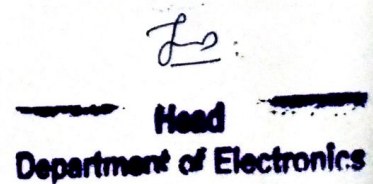 Head
Department of Electronics